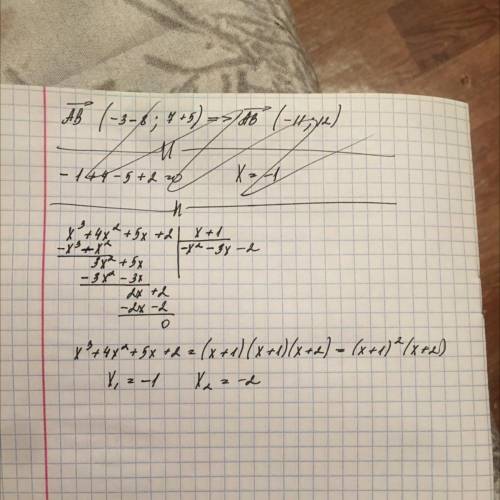 AB (-3-8; 7+5) => AB (-11; 12)
-1+4-5+2=0 x=-1
x³+4x²+5x+2 | x+1
-x³-x² | -x²-3x-2
3x²+5x
-3x²-3x
2x+2
-2x-2
0
x³+4x²+5x+2=(x+1)(x+1)(x+2)=(x+1)²(x+2)
x₁=-1 x₂=-2